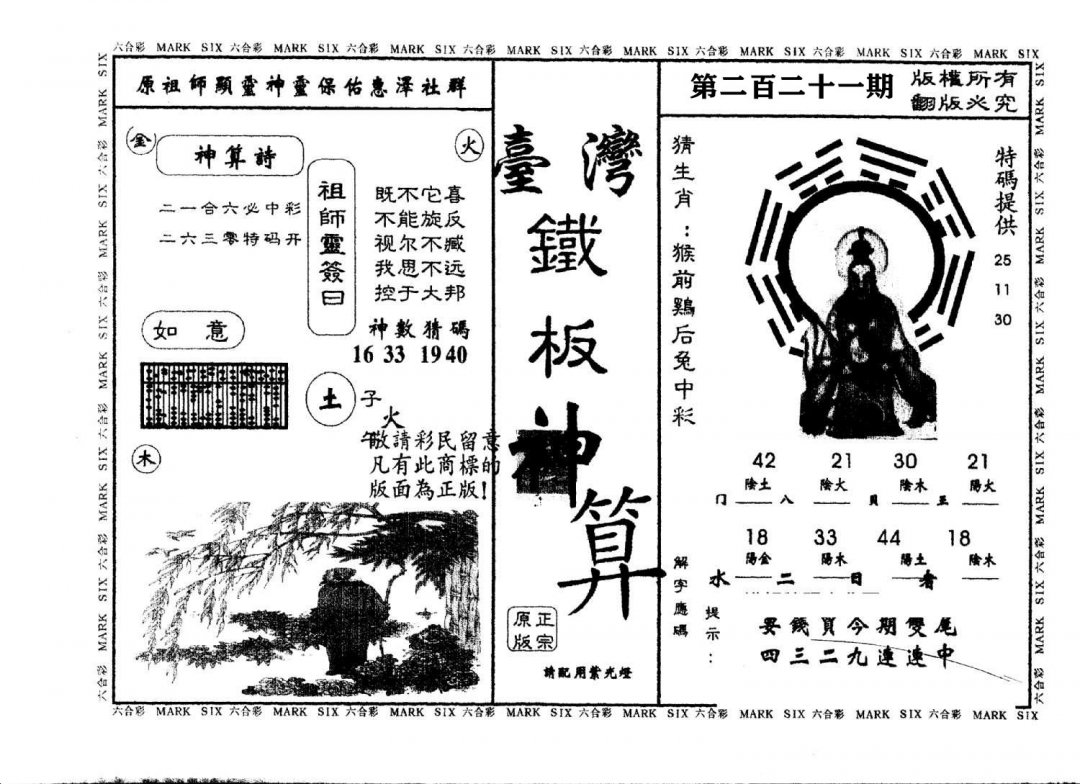 六合彩 MARK SIX 六合彩 MARK SIX 六合彩 MARK SIX 六合彩 MARK SIX 六合彩 MARK SIX 六合彩 MARK SIX 六合彩 MARK SIX 六合彩 MARK SIX
原祖師顯靈神靈保佑惠澤社群
金
火
神算詩
二一合六必中彩
二六三零特码开
祖師靈簽曰
既不它喜
不能旋反
视尔不臧
我思不远
控于大邦
神數猜碼
16 33 19 40
如意
土
子
火
午
木
敬請彩民留意
凡有此商標的
版面為正版!
臺灣
鐵
板
神
算
正宗
原版
請配用紫光燈
第二百二十一期
版權所有
翻版必究
猜生肖:猴前鷄后兔中彩
特碼提供
25
11
30
42 21 30 21
陰土 陰火 陰木 陽火
八 貝 五
18 33 44 18
陽金 陽木 陽土 陰木
水 二 日 者
解字應碼
提示:
要錢買今期雙尾
四三二九連連中
六合彩 MARK SIX 六合彩 MARK SIX 六合彩 MARK SIX 六合彩 MARK SIX 六合彩 MARK SIX 六合彩 MARK SIX 六合彩 MARK SIX 六合彩 MARK SIX